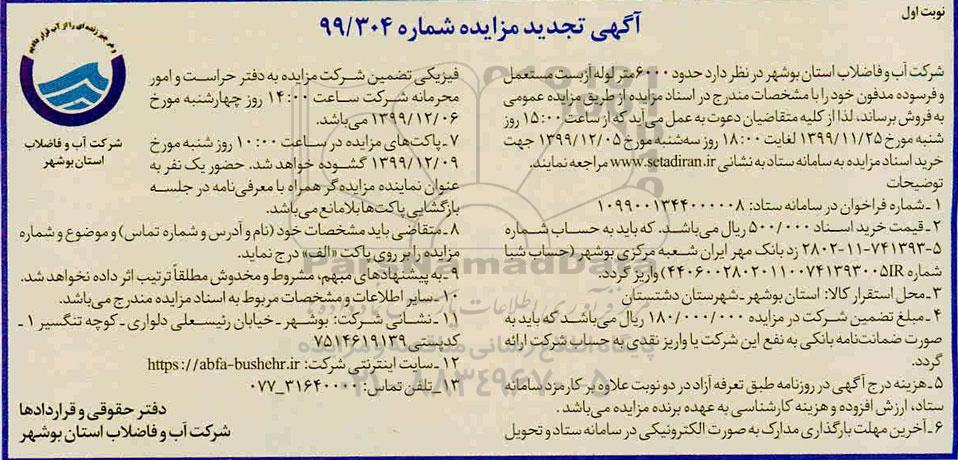 نوبت اول
آگهی تجدید مزایده شماره ۹۹/۳۰۴
شرکت آب و فاضلاب استان بوشهر در نظر دارد حدود ۶۰۰۰متر لوله آزبست مستعمل
و فرسوده مدفون خود را با مشخصات مندرج در اسناد مزایده از طریق مزایده عمومی
به فروش برساند، لذا از کلیه متقاضیان دعوت به عمل می‌آید که از ساعت ۱۵:۰۰ روز
شنبه مورخ ۱۳۹۹/۱۱/۲۵ لغایت ۱۸:۰۰ روز سه‌شنبه مورخ ۱۳۹۹/۱۲/۰۵ جهت
خرید اسناد مزایده به سامانه ستاد به نشانی www.setadiran.ir مراجعه نمایند.
توضیحات
۱ـ شماره فراخوان در سامانه ستاد: ۱۰۹۹۰۰۱۳۴۴۰۰۰۰۰۸
۲ـ قیمت خرید اسناد ۵۰۰/۰۰۰ ریال می‌باشد. که باید به حساب شماره
۲۸۰۲-۱۱-۷۴۱۳۹۳-۵ زد بانک مهر ایران شعبه مرکزی بوشهر (حساب شبا
شماره ۴۴۰۶۰۰۲۸۰۲۰۱۱۰۰۷۴۱۳۹۳۰۰۵IR) واریز گردد.
۳ـ محل استقرار کالا: استان بوشهر ـ شهرستان دشتستان
۴ـ مبلغ تضمین شرکت در مزایده ۱۸۰/۰۰۰/۰۰۰ ریال می‌باشد که باید به
صورت ضمانت‌نامه بانکی به نفع این شرکت یا واریز نقدی به حساب شرکت ارائه
گردد.
۵ـ هزینه درج آگهی در روزنامه طبق تعرفه آزاد در دو نوبت علاوه بر کارمزد سامانه
ستاد، ارزش افزوده و هزینه کارشناسی به عهده برنده مزایده می‌باشد.
۶ـ آخرین مهلت بارگذاری مدارک به صورت الکترونیکی در سامانه ستاد و تحویل
فیزیکی تضمین شرکت مزایده به دفتر حراست و امور
محرمانه شرکت ساعت ۱۴:۰۰ روز چهارشنبه مورخ
۱۳۹۹/۱۲/۰۶ می‌باشد.
۷ـ پاکت‌های مزایده در ساعت ۱۰:۰۰ روز شنبه مورخ
۱۳۹۹/۱۲/۰۹ گشوده خواهد شد. حضور یک نفر به
عنوان نماینده مزایده‌گر همراه با معرفی‌نامه در جلسه
بازگشایی پاکت‌ها بلامانع می‌باشد.
۸ـ متقاضی باید مشخصات خود (نام و آدرس و شماره تماس) و موضوع و شماره
مزایده را بر روی پاکت «الف» درج نماید.
۹ـ به پیشنهادهای مبهم، مشروط و مخدوش مطلقاً ترتیب اثر داده نخواهد شد.
۱۰ـ سایر اطلاعات و مشخصات مربوط به اسناد مزایده مندرج می‌باشد.
۱۱ـ نشانی شرکت: بوشهر ـ خیابان رئیسعلی دلواری ـ کوچه تنگسیر ۱ ـ
کدپستی ۷۵۱۴۶۱۹۱۳۹
۱۲ـ سایت اینترنتی شرکت: https://abfa-bushehr.ir
۱۳ـ تلفن تماس: ۳۱۶۴۰۰۰۰_۰۷۷
دفتر حقوقی و قراردادها
شرکت آب و فاضلاب استان بوشهر
و هر چیز زنده‌ای را از آب قرار دادیم
شرکت آب و فاضلاب
استان بوشهر